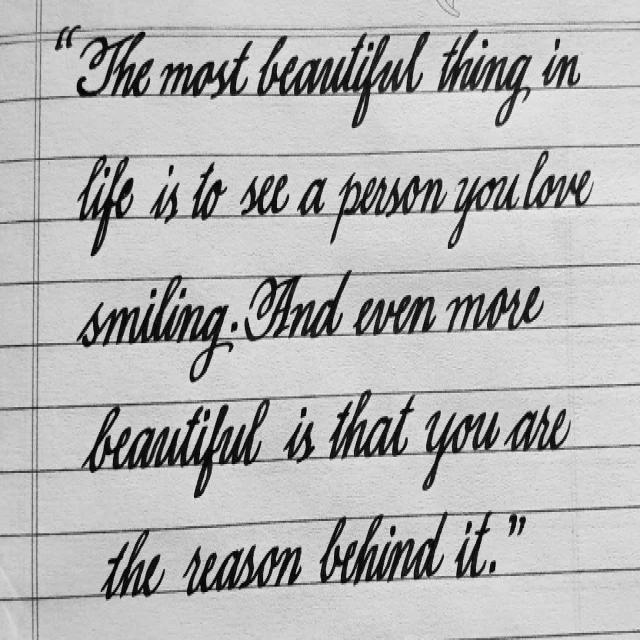 “The most beautiful thing in
life is to see a person you love
smiling. And even more
beautiful is that you are
the reason behind it.”